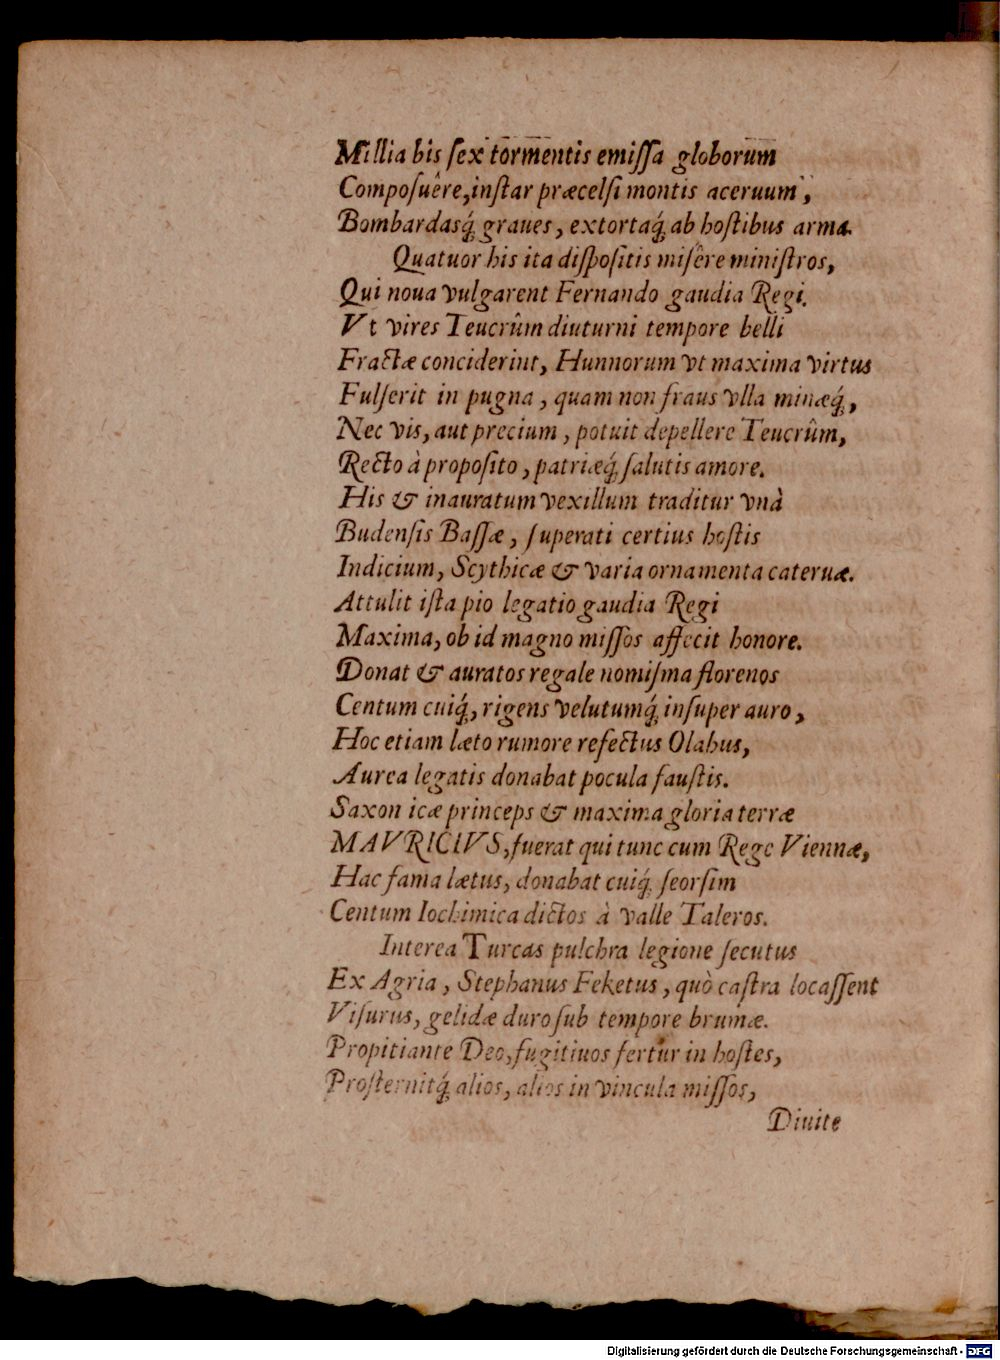 Millia bis ſex tormentis emiſſa globorum
Compoſuêre, inſtar præcelſi montis aceruum,
Bombardasq́; graues, extortaq́; ab hoſtibus arma.
Quatuor his ita diſpoſitis miſêre miniſtros,
Qui noua vulgarent Fernando gaudia Regi.
Vt vires Teucrûm diuturni tempore belli
Fractæ conciderint, Hunnorum vt maxima virtus
Fulſerit in pugna, quam non fraus vlla minæq́;,
Nec vis, aut precium, potuit depellere Teucrûm,
Recto à propoſito, patriæq́; ſalutis amore.
His & inauratum vexillum traditur vnà
Budenſis Baſſæ, ſuperati certius hoſtis
Indicium, Scythicæ & varia ornamenta cateruæ.
Attulit iſta pio legatio gaudia Regi
Maxima, ob id magno miſſos affecit honore.
Donat & auratos regale nomiſma florenos
Centum cuiq́;, rigens velutumq́; inſuper auro,
Hoc etiam læto rumore refectus Olahus,
Aurea legatis donabat pocula fauſtis.
Saxon icæ princeps & maxima gloria terræ
MAVRICIVS, fuerat qui tunc cum Rege Viennæ,
Hac fama lætus, donabat cuiq́; ſeorſim
Centum Iochimica dictos à valle Taleros.
Interea Turcas pulchra legione ſecutus
Ex Agria, Stephanus Feketus, quò caſtra locaſſent
Viſurus, gelidæ duro ſub tempore brumæ.
Propitiante Deo, fugitiuos fertur in hoſtes,
Proſternitq́; alios, alios in vincula miſſos,
Diuite
Digitalisierung gefördert durch die Deutsche Forschungsgemeinschaft - DFG